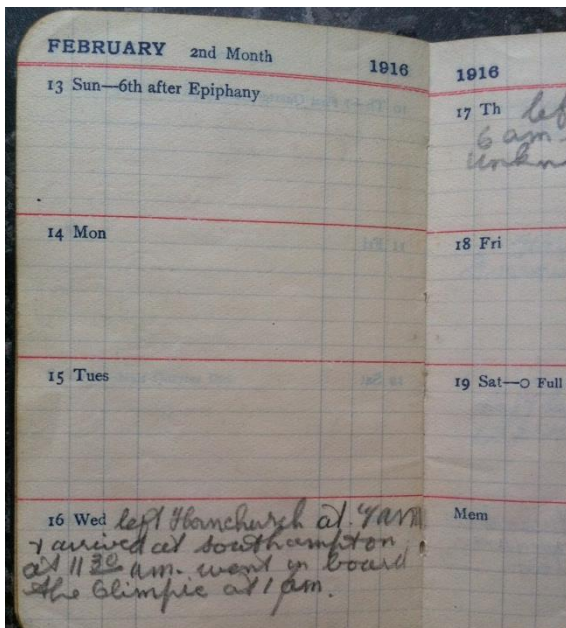 FEBRUARY 2nd Month 1916
13 Sun—6th after Epiphany
14 Mon
15 Tues
16 Wed left Hornchurch at 7 am
& arrived at Southampton
at 11 30 am. went on board
the Olimpic at 1 am.
1916
17 Th lef
6 am
unkn
18 Fri
19 Sat—O Full
Mem